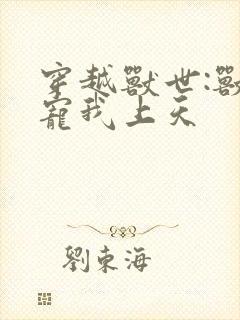 穿越獸世:獸
寵我上天
劉東海